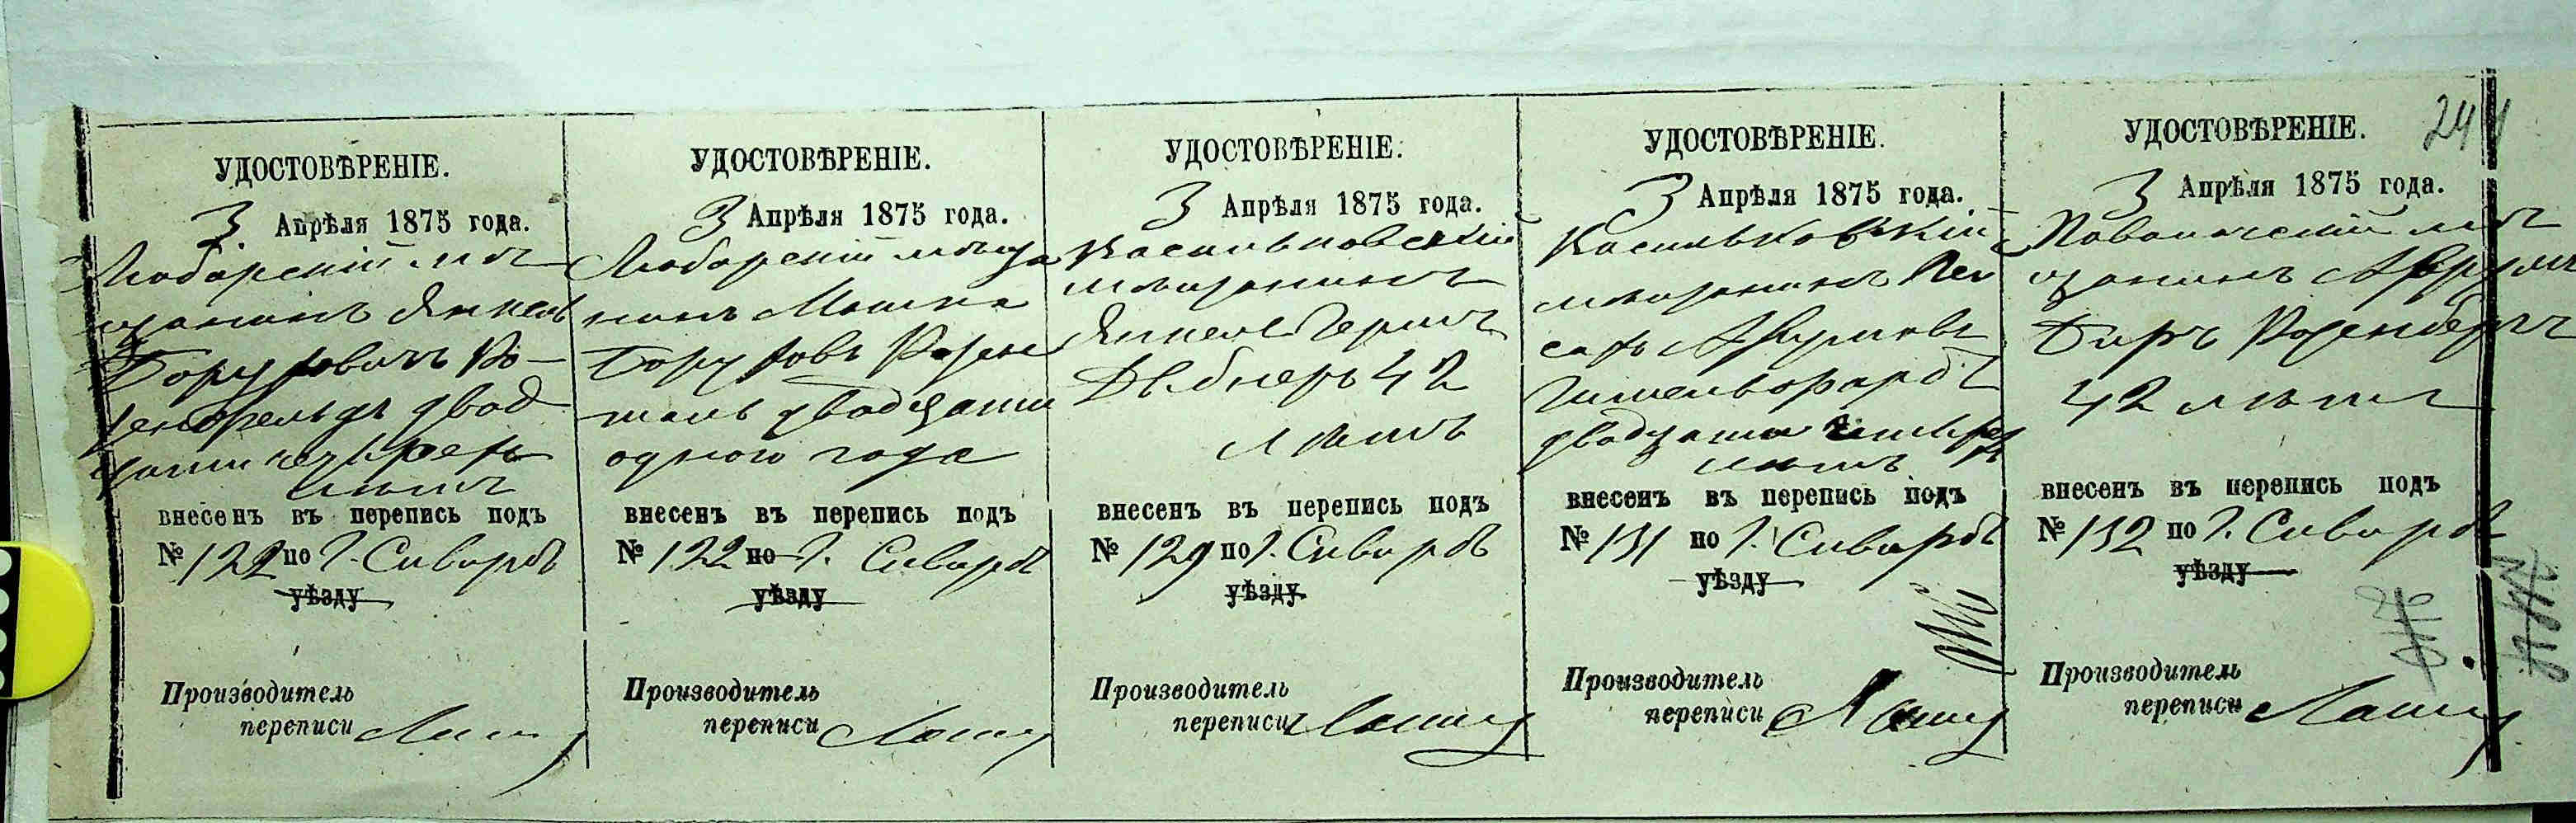 244
УДОСТОВѢРЕНІЕ.
3 Апрѣля 1875 года.
Любарскій мѣ
щанинъ Янкель
Боруховичъ Ро-
зенфельдъ двад
цати четырехъ
лѣтъ
внесенъ въ перепись подъ
№ 122 по г. Сквирѣ
уѣзду
Производитель
переписи
УДОСТОВѢРЕНІЕ.
3 Апрѣля 1875 года.
Любарскій мѣща
нинъ Мошко
Боруховъ Розен
двадцати
одного года
внесенъ въ перепись подъ
№ 122 по г. Сквирѣ
уѣзду
Производитель
переписи
УДОСТОВѢРЕНІЕ.
3 Апрѣля 1875 года.
Васильковскій
мѣщанинъ
Янкель Герш
42
лѣтъ
внесенъ въ перепись подъ
№ 129 по г. Сквирѣ
уѣзду
Производитель
переписи
УДОСТОВѢРЕНІЕ.
3 Апрѣля 1875 года.
Васильковскій
мѣщанинъ Пей
сахъ
двадцати четырехъ
лѣтъ
внесенъ въ перепись подъ
№ 131 по г. Сквирѣ
уѣзду
Производитель
переписи
УДОСТОВѢРЕНІЕ.
3 Апрѣля 1875 года.
мѣ
щанинъ Аврумъ
Беръ Розенбергъ
42 лѣтъ
внесенъ въ перепись подъ
№ 132 по г. Сквирѣ
уѣзду
Производитель
переписи